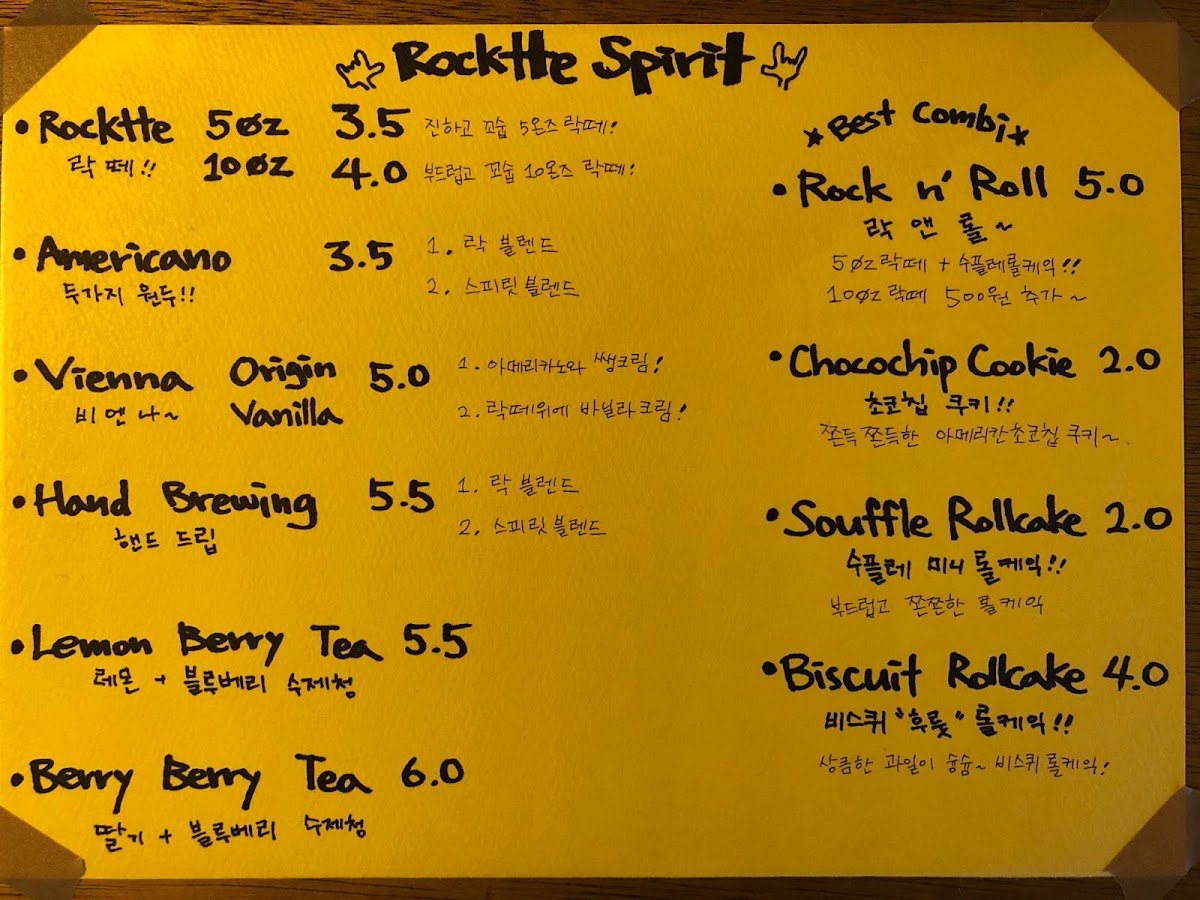 Rocktte Spirit
• Rocktte 5øz 3.5 진하고 꼬숩 5온즈 락떼!
락 떼!! 10øz 4.0 부드럽고 꼬숩 10온즈 락떼!
• Americano 3.5 1. 락 블렌드
두가지 원두!! 2. 스피릿 블렌드
• Vienna Origin 5.0 1. 아메리카노와 쌩크림!
비엔나~ Vanilla 2. 락떼위에 바닐라크림!
• Hand Brewing 5.5 1. 락 블렌드
핸드 드립 2. 스피릿 블렌드
• Lemon Berry Tea 5.5
레몬 + 블루베리 수제청
• Berry Berry Tea 6.0
딸기 + 블루베리 수제청
★Best Combi★
• Rock n' Roll 5.0
락 앤 롤~
5øz락떼 + 수플레롤케익!!
10øz락떼 500원 추가~
• Chocochip Cookie 2.0
초코칩 쿠키!!
쫀득쫀득한 아메리칸초코칩 쿠키~.
• Souffle Rollcake 2.0
수플레 미니 롤케익!!
부드럽고 쫀쫀한 롤케익
• Biscuit Rollcake 4.0
비스퀴 "후룻" 롤케익!!
상큼한 과일이 슝슝~ 비스퀴롤케익!